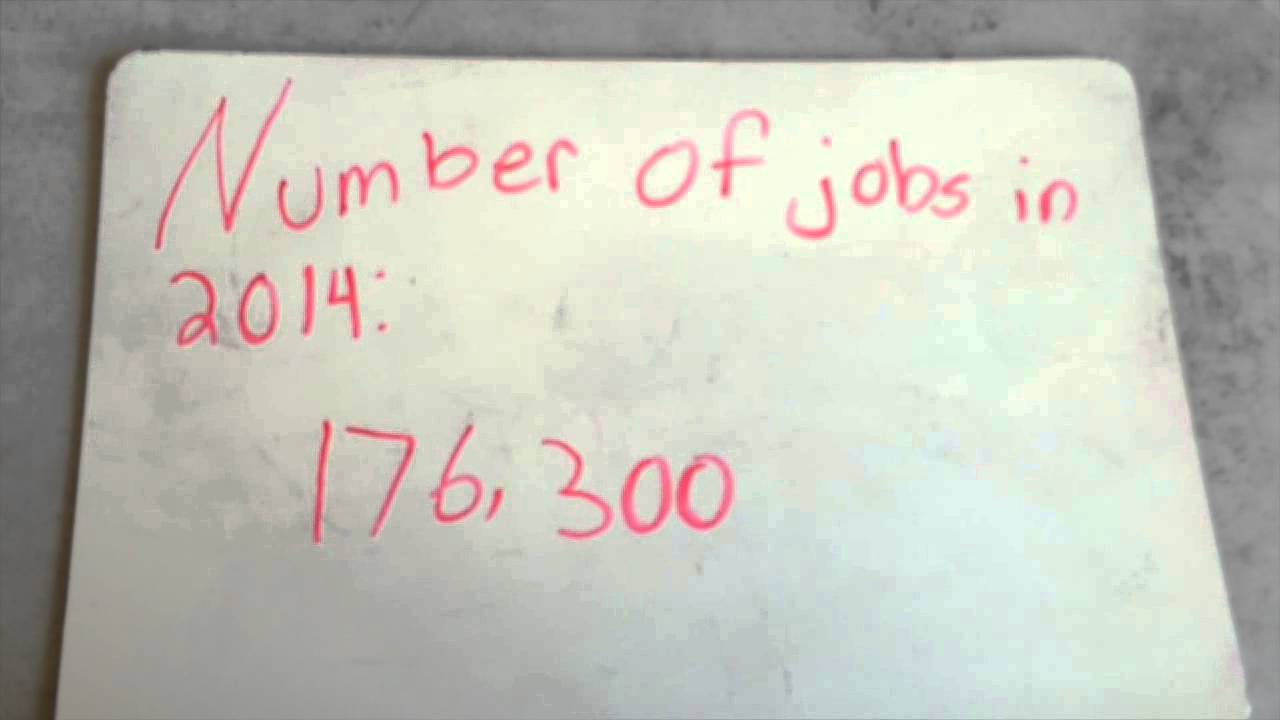 Number of jobs in
2014:
176,300